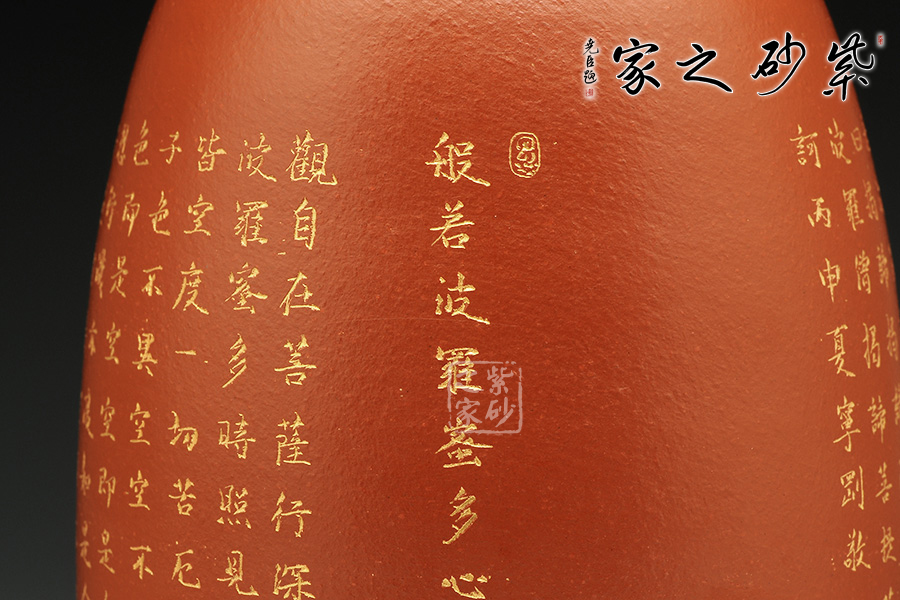 紫砂之家
般若波羅蜜多心
觀自在菩薩行深
波羅蜜多時照見
皆空度一切苦厄
子色不異空空不
色即是空空即是
波羅僧揭諦菩提
訶丙申夏寧剛敬
紫砂
家